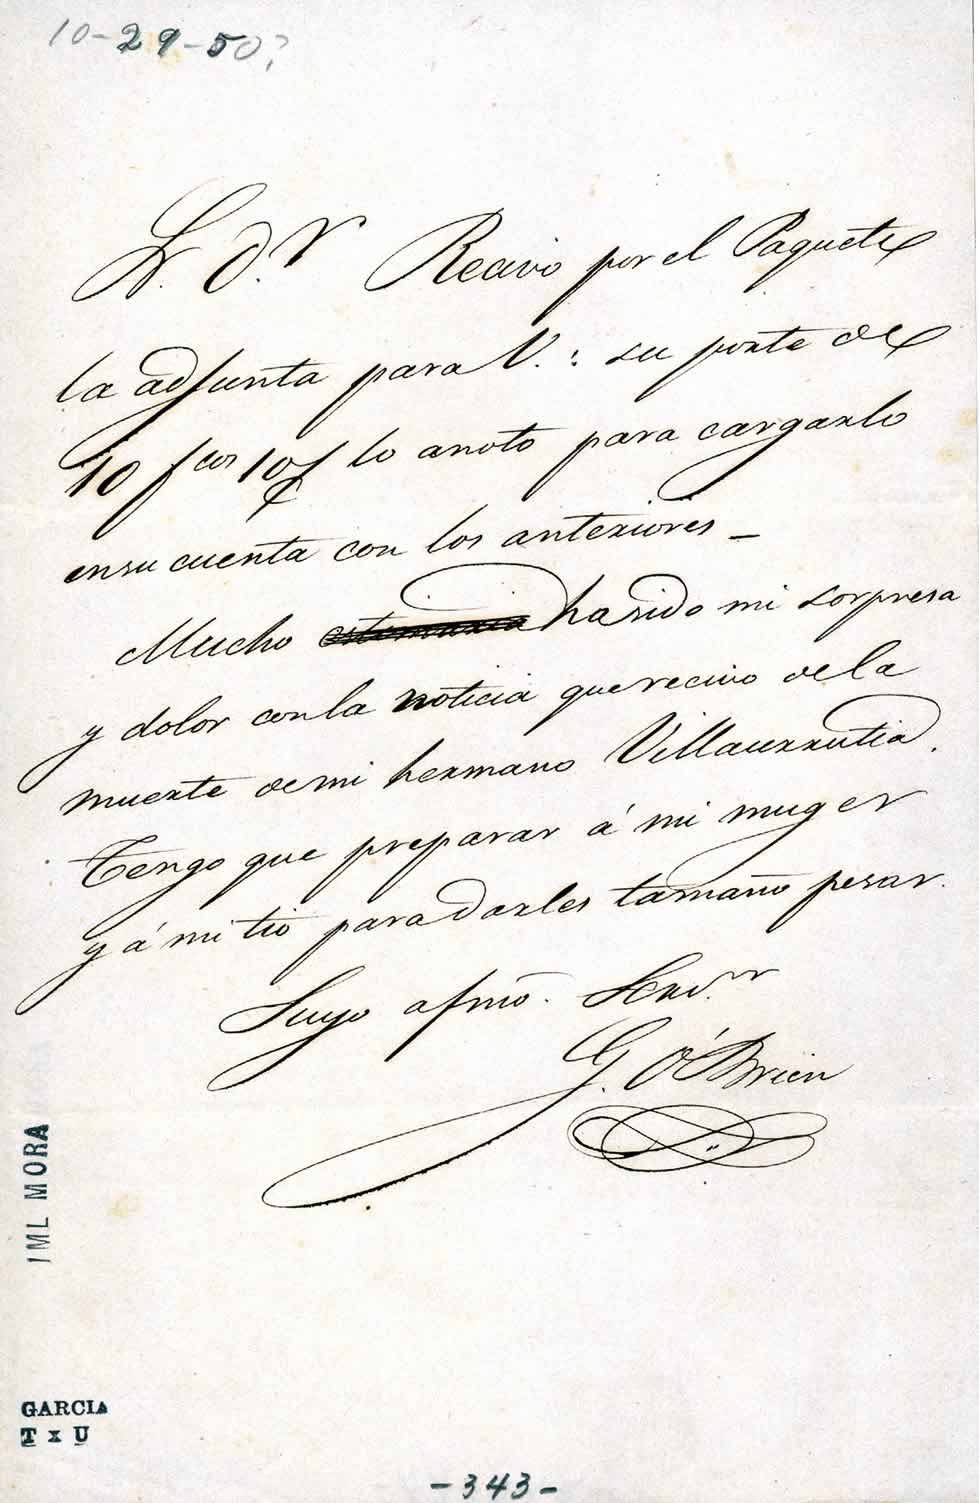 10-29-50?
S. D.r Recivo por el Paquete
la adjunta para V.: su porte de
10 fcos 10 lo anoto para cargarlo
en su cuenta con los anteriores _
Mucho ha sido mi sorpresa
y dolor con la noticia que recivo de la
muerte de mi hermano Villaurrutia.
Tengo que preparar á mi muger
y á mi tio para darles tamaño pesar.
Suyo afmo. Serv.or
G. O'Brien
IML MORA
GARCIA
T x U
-343-